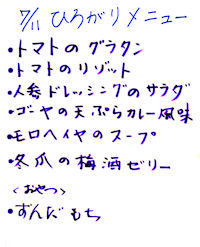 7/11 ひろがりメニュー
・トマトの グラタン
・トマトのリゾット
・人参ドレッシングのサラダ
・ゴーヤの天ぷらカレー風味
・モロヘイヤのスープ
・冬瓜の梅酒ゼリー
<おやつ>
・ずんだもち